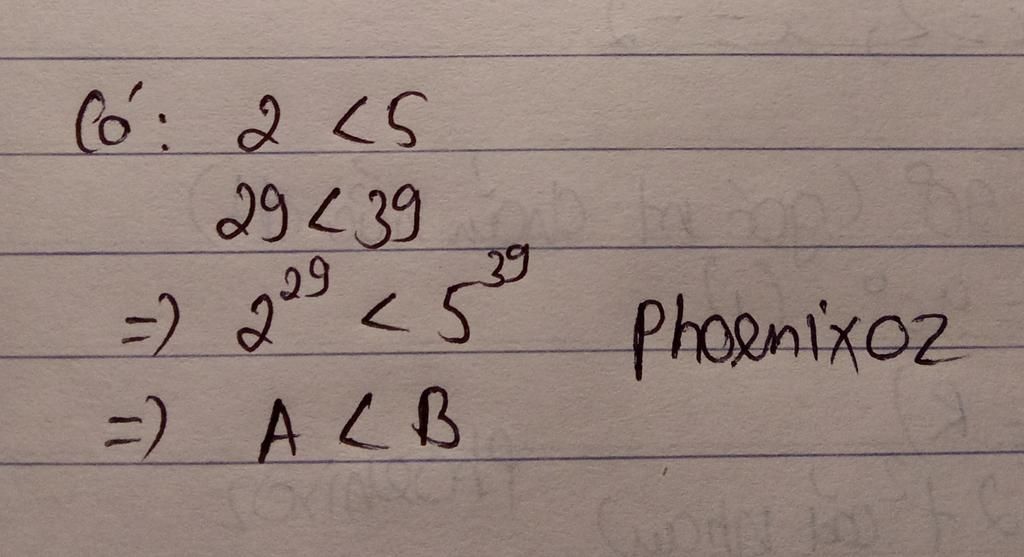 Có: 2 < 5
29 < 39
=) 2^29 < 5^39
Phoenixoz
=) A < B